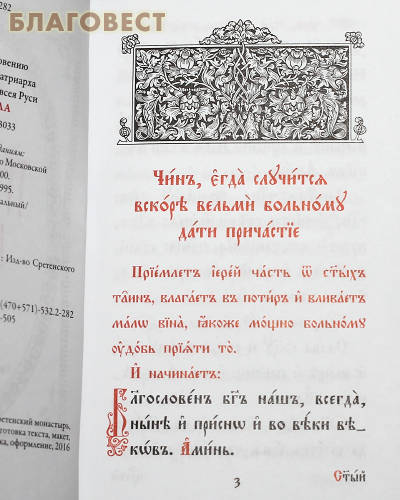 БЛАГОВЕСТ
-282
овению
атриарха
всея Руси
ЛА
3033
даниям:
о Московской
00.
995.
альный/
: Изд-во Сретенского
(470+571)-532.2-282
-505
ретенский монастырь,
готовка текста, макет,
ка, оформление, 2016
Чи́нъ, є҆гда̀ случи́тсѧ
вско́рѣ вельмѝ больно́му
да́ти прича́стїе
Прїе́млетъ і҆ере́й ча́сть ѿ ст҃ы́хъ
та̑инъ, влага́етъ въ поти́ръ и҆ влива́етъ
ма́лѡ вїна̀, ꙗ҆́коже мо́щно больно́му
ᲂу҆до́бь прїѧ́ти то̀.
И҆ начина́етъ:
Благослове́нъ бг҃ъ на́шъ, всегда̀,
ны́нѣ и҆ при́снѡ и҆ во вѣ́ки вѣ-
кѡ́въ. А҆ми́нь.
3
Ст҃ы́й